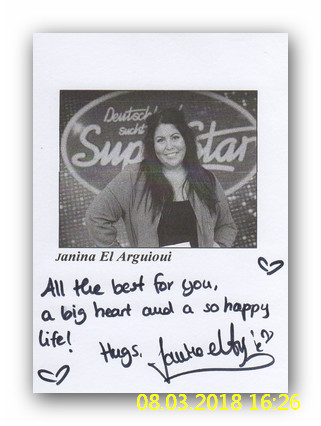 Deutschland
sucht
SuperStar
Janina El Arguioui
All the best for you,
a big heart and a so happy
life!
Hugs,
08.03.2018 16:26